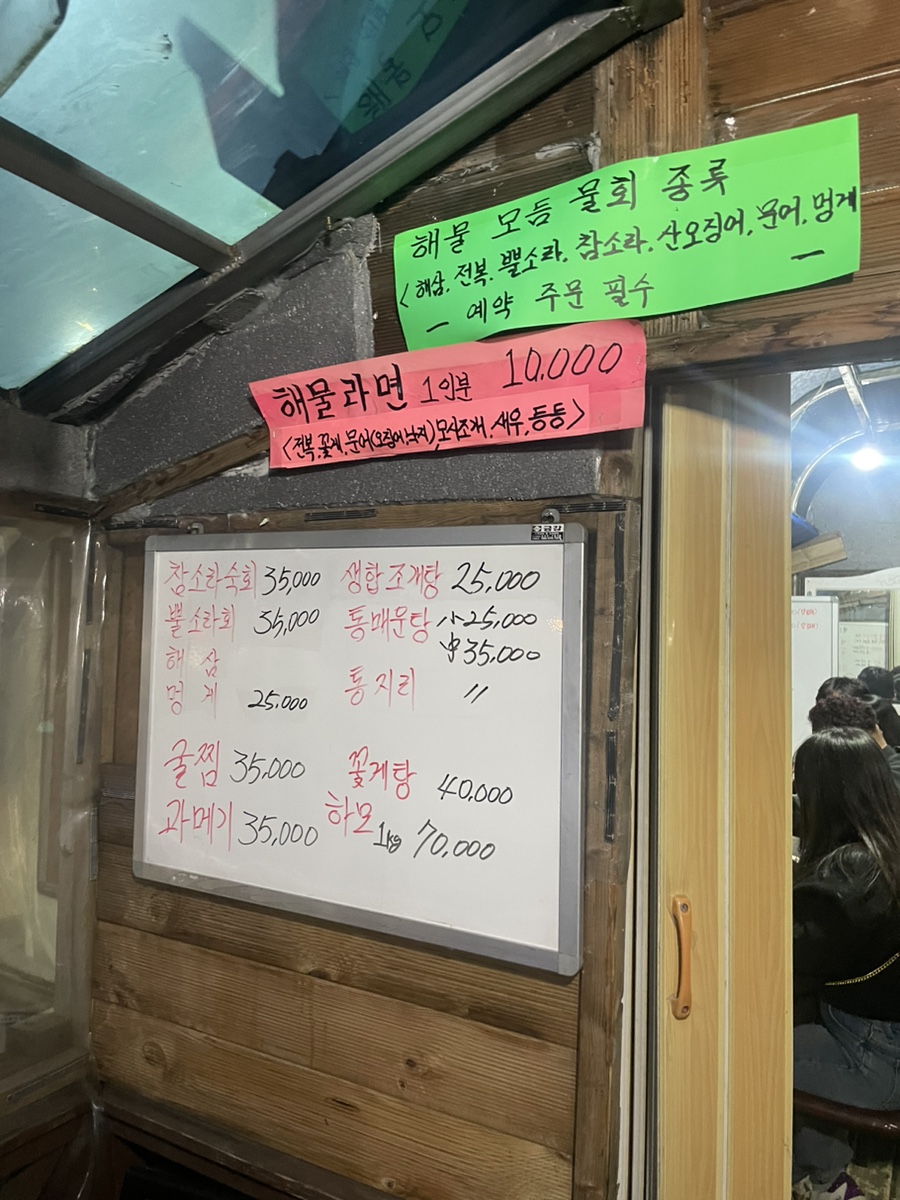 해물 모듬 물회 종류
<해삼, 전복, 뿔소라, 참소라, 산오징어, 문어, 멍게
- 예약 주문 필수 -
해물라면 1인부 10,000
<전복, 꽃게, 문어(오징어, 낙지), 모시조개, 새우, 등등>
참소라숙회 35,000
뿔소라회 35,000
해삼
멍게 25,000
굴찜 35,000
과메기 35,000
생합조개탕 25,000
통매운탕 小 25,000
中 35,000
통지리 〃
꽃게탕 40,000
하모 1kg 70,000